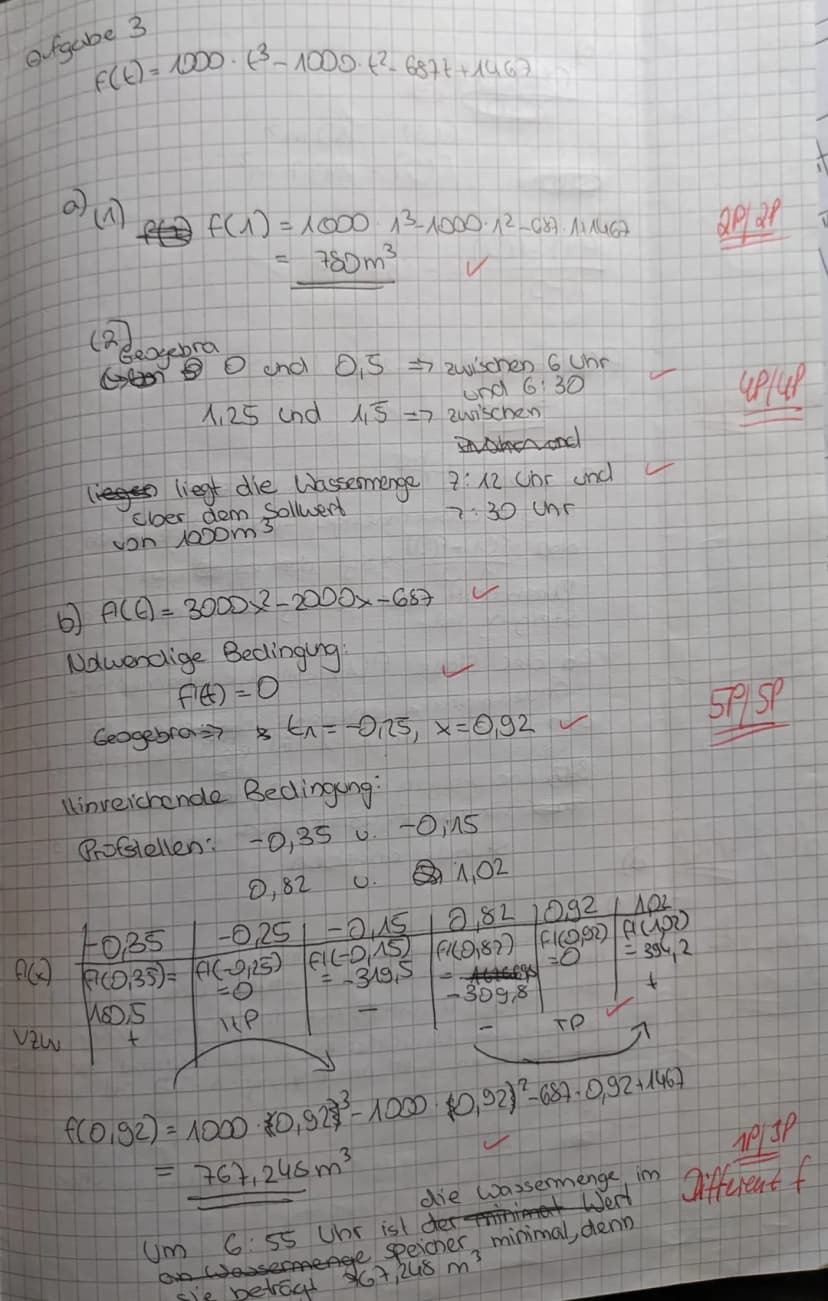 Aufgabe 3
f(t) = 1000 · t³ - 1000 · t² - 687t + 1467
a) (1) f(1) = 1000 · 1³ - 1000 · 1² - 687 · 1 + 1467 2P/2P
= 780m³ ✓
(2) Geogebra
0 und 0,5 => zwischen 6 Uhr ✓
und 6:30 4P/4P
1,25 und 1,5 => zwischen
liegt die Wassermenge 7:12 Uhr und ✓
über dem Sollwert 7:30 Uhr
von 1000m³
b) f'(t) = 3000x² - 2000x - 687 ✓
Notwendige Bedingung:
f'(t) = 0 ✓
Geogebra => t₁ = -0,25, x = 0,92 ✓ 5P/5P
Hinreichende Bedingung:
Probstellen: -0,35 u. -0,15
0,82 u. 1,02
-0,35 | -0,25 | -0,15 | 0,82 | 0,92 | 1,02
f'(x) f'(0,35)= | f'(-0,25) | f'(-0,15) | f'(0,82) | f'(0,92) | f'(1,02)
180,5 | =0 | = -319,5 | = -309,8 | =0 | = 394,2
VZW + | HP | - | - | TP | + ✓
f(0,92) = 1000 · (0,92)³ - 1000 · (0,92)² - 687 · 0,92 + 1467
= 767,248 m³ ✓ 1P/3P
die Wassermenge im Different f
Um 6:55 Uhr ist
speicher minimal, denn
sie beträgt 767,248 m³